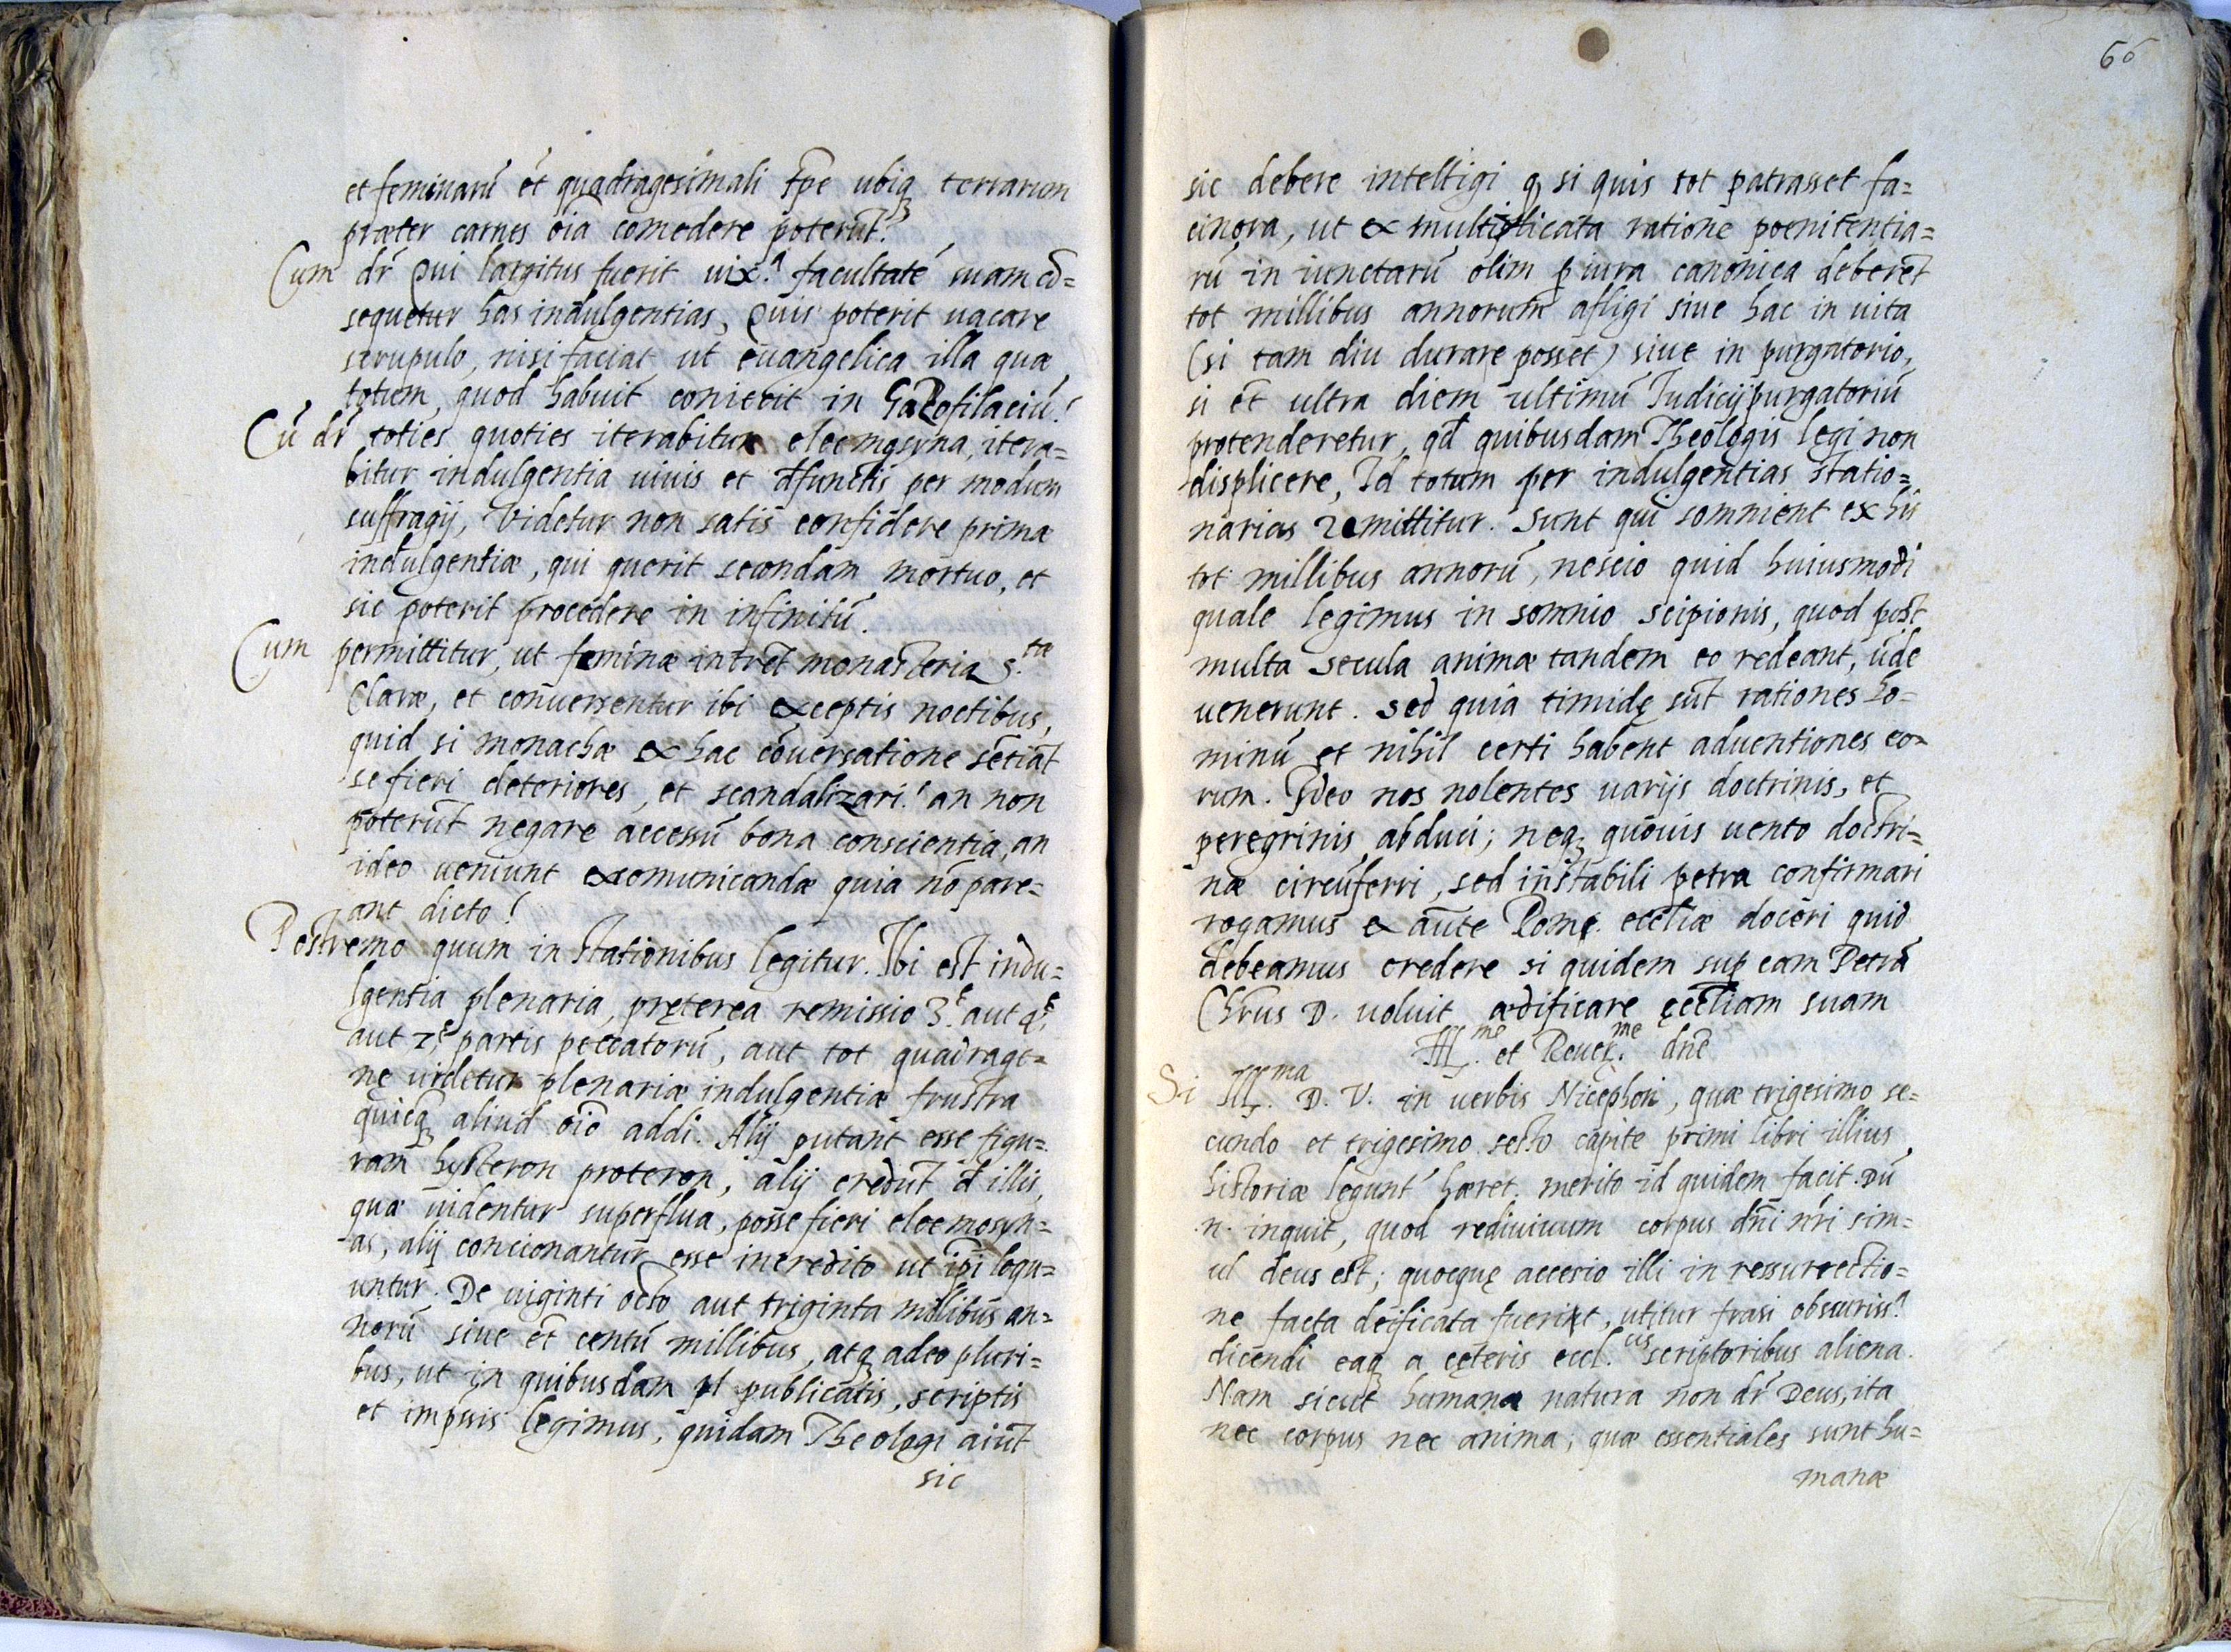 et feminarū et quadragesimali tp̄e ubiq; terrarum
præter carnes oīa comedere poterūt?
Cum dr̄ Qui largitus fuerit uix.ᵃ facultatē suam cō=
sequetur has indulgentias, Quis poterit uacare
scrupulo, nisi faciat ut euangelica illa quæ
totum, quod habuit coniecit in Gazofilaciū!
Cū dr̄ toties quoties iterabitur eleemosyna, itera=
bitur indulgentia uiuis et d̄functis per modum
suffragij, Videtur non satis confidere primæ
indulgentiæ, qui querit secondam mortuo, et
sic poterit procedere in infinitū.
Cum permittitur, ut feminæ intrēt monasteria S.ᵗᵃᵉ
Claræ, et conuersentur ibi exceptis noctibus,
quid si monachæ ex hac cōuersatione sētiāt
se fieri deteriores, et scandalizari! an non
poterūt negare accessū bona conscientia, an
ideo ueniunt excomunicandæ quia nō pare=
ant dicto!
Postremo quum in stationibus legitur. Ibi est indu=
lgentia plenaria, pręterea remissio 3.ᵉ aut 4.ᵉ
aut 7.ᵉ partis peccatorū, aut tot quadrage=
nę uidetur plenariæ indulgentiæ frustra
quicq; aliud oīo addi. Alij putant esse figu=
ram hysteron proteron, alij credūt d̄ illis,
quæ uidentur superflua, posse fieri eleemosyn=
as, alij concionantur esse incredito ut ip̄i loqu=
untur. De uiginti octo aut triginta millibus an=
norū siue et̄ centū millibus, atq; adeo pluri=
bus, ut in quibusdam pl publicatis, scriptis
et impssis legimus, quidam Theologi aiūt
sic
66
sic debere intelligi q, si quis tot patrasset fa=
cinora, ut ex multiplicata ratione poenitentia=
rū in iunctarū olim p iura canonica deberet
tot millibus annorum afligi siue hac in uita
(si tam diu durare posset) siue in purgatorio,
si et̄ ultra diem ultimū Iudicij purgatoriū
protenderetur, qd̄ quibusdam Theologis legi non
displicere, Id totum per indulgentias statio=
narias remittitur. Sunt qui somnient ex his
tot millibus annorū, nescio quid huiusmodi
quale legimus in somnio scipionis, quod post
multa secula animæ tandem eo redeant, ūde
uenerunt. Sed quia timidę sūt rationes ho=
minū et nihil certi habent aduentiones eo=
rum. Ideo nos nolentes uarijs doctrinis, et
peregrinis abduci; neq; quouis uento doctri=
næ circūferri, sed in stabili petra confirmari
rogamus ex aūte Romę. eccliæ doceri quid
debeamus credere si quidem sup eam Petrā
Chr̄us D. uoluit ædificare ęccliam suam
Ill.ᵐᵉ et Reuer.ᵐᵉ dn̄e
Si Ill.ᵐᵃ D. V. in uerbis Nicephori, quæ trigesimo se=
cundo et trigesimo sesto capite primi libri illius
historiæ legunt̄ hæret, merito id quidem facit. Dū
.n. inquit, quod rediuiuum corpus dn̄i nr̄i sim=
ul deus est; quoequę accesio illi in ressurrectio=
ne facta deificata fuerint, utitur frasi obscuriss.ᵃ
dicendi eaq; a cęteris eccl.ᶜⁱˢ scriptoribus aliena.
Nam sicut humana natura non dr̄ Deus, ita
nec corpus nec anima; quæ essentiales sunt hu=
manæ